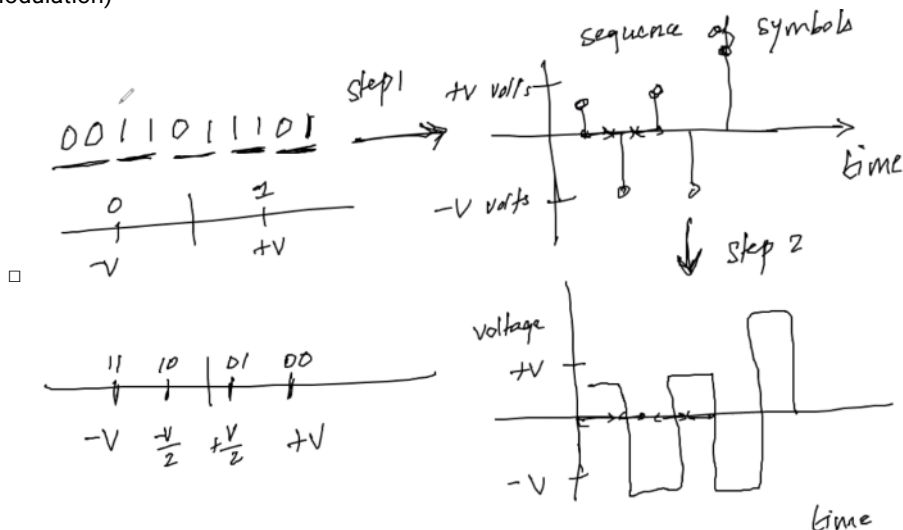 odulation)
sequence of symbols
0011011101
step1
+V volts
-V volts
time
0 1
-V +V
step 2
voltage
+V
-V
time
11 10 01 00
-V -V/2 +V/2 +V